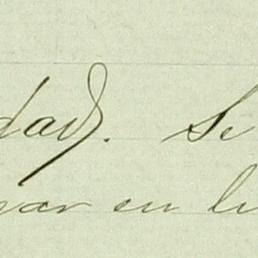 dad. Se
var en lu